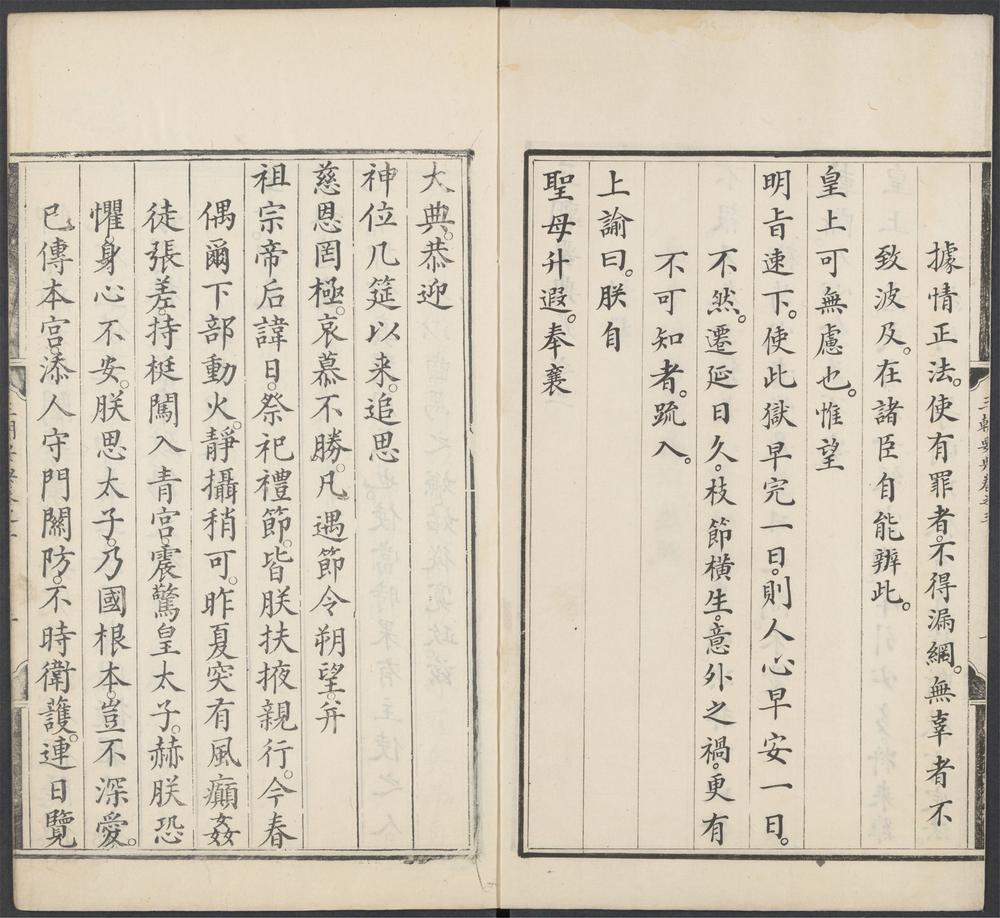 據情正法。使有罪者。不得漏網。無辜者不
致波及。在諸臣自能辨此。
皇上可無慮也。惟望
明旨速下。使此獄早完一日。則人心早安一日。
不然。遷延日久。枝節橫生。意外之禍。更有
不可知者。疏入。
上諭曰。朕自
聖母升遐。奉襄
大典。恭迎
神位几筵以来。追思
慈恩罔極。哀慕不勝。凡遇節令朔望。并
祖宗帝后諱日。祭祀禮節。皆朕扶掖親行。今春
偶爾下部動火。靜攝稍可。昨夏突有風癲姦
徒張差。持梃闖入青宮。震驚皇太子。赫朕恐
懼。身心不安。朕思太子。乃國根本。豈不深愛。
已傳本宮。添人守門關防。不時衛護。連日覽